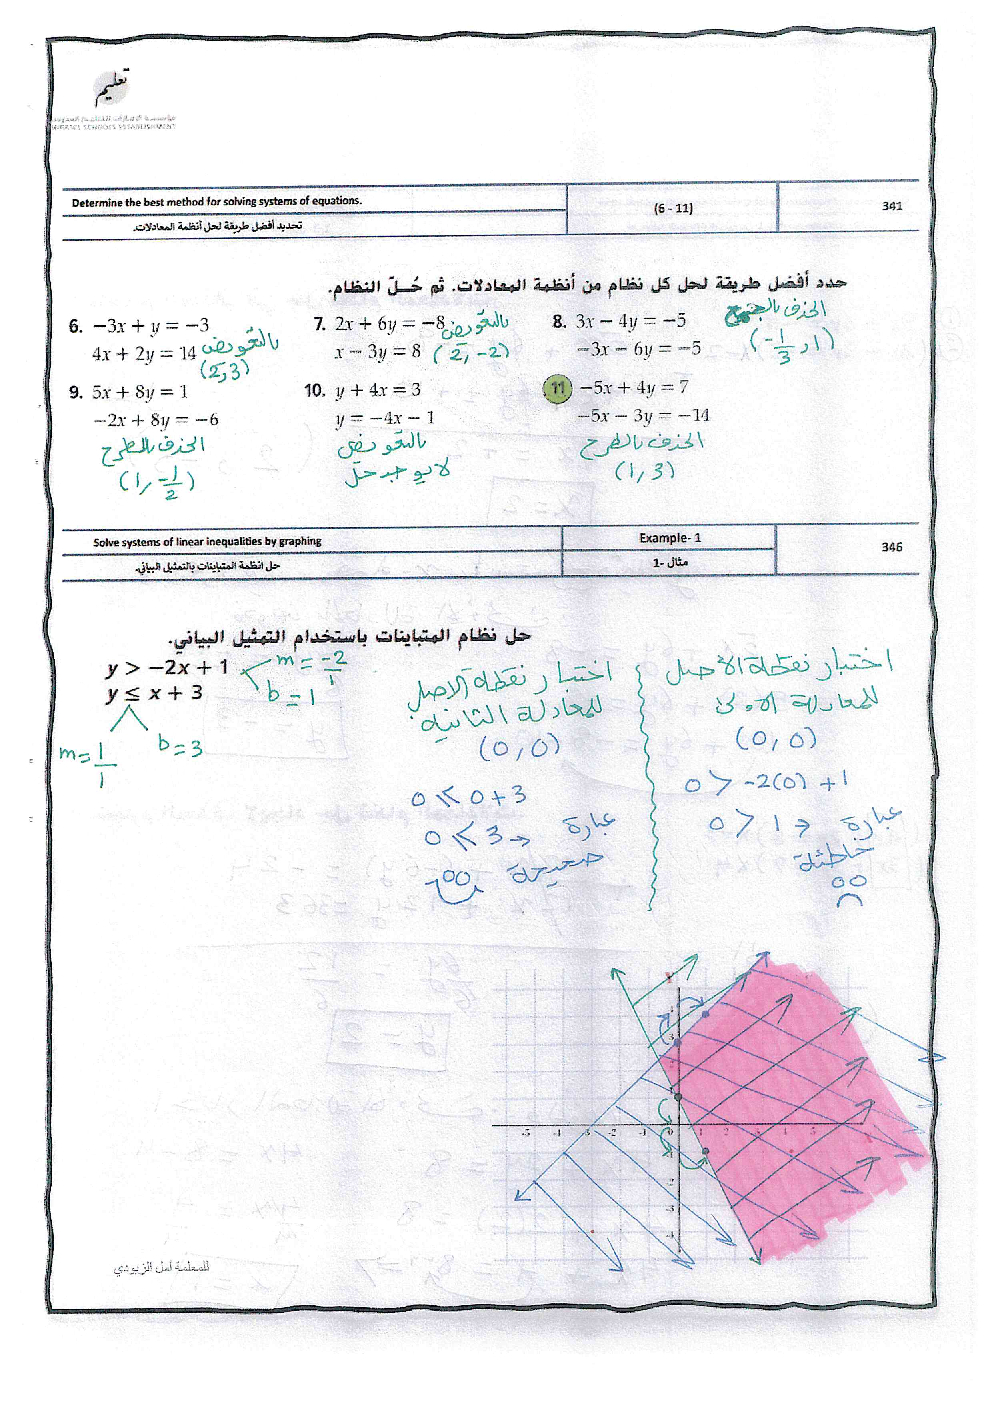 تعليم
مؤسسة الإمارات للتعليم المدرسي
EMIRATES SCHOOLS ESTABLISHMENT
Determine the best method for solving systems of equations.
تحديد أفضل طريقة لحل أنظمة المعادلات.
(6 - 11)
341
حدد أفضل طريقة لحل كل نظام من أنظمة المعادلات. ثم حُلّ النظام.
6. −3x + y = −3
4x + 2y = 14 بالتعويض
(2, 3)
7. 2x + 6y = −8 بالتعويض
x − 3y = 8 (2, -2)
8. 3x − 4y = −5 الحذف بالجمع
−3x − 6y = −5 (-1/3, 1)
9. 5x + 8y = 1
−2x + 8y = −6
الحذف بالطرح
(1, -1/2)
10. y + 4x = 3
y = −4x − 1
بالتعويض
لا يوجد حل
11 −5x + 4y = 7
−5x − 3y = −14
الحذف بالطرح
(1, 3)
Solve systems of linear inequalities by graphing
حل انظمة المتباينات بالتمثيل البياني.
Example- 1
مثال -1
346
حل نظام المتباينات باستخدام التمثيل البياني.
y > −2x + 1 m = -2/1
b = 1
y ≤ x + 3
m = 1/1 b = 3
اختبار نقطة الأصل
للمعادلة الأولى
(0, 0)
0 > -2(0) + 1
0 > 1 → عبارة
خاطئة
اختبار نقطة الاصل
للمعادلة الثانية
(0, 0)
0 ≤ 0 + 3
0 ≤ 3 → عبارة
صحيحة
Y
3
-5 -4 -3 -2 -1 0 1
X
-2
-3
-4
للمعلمة أمل الزيودي